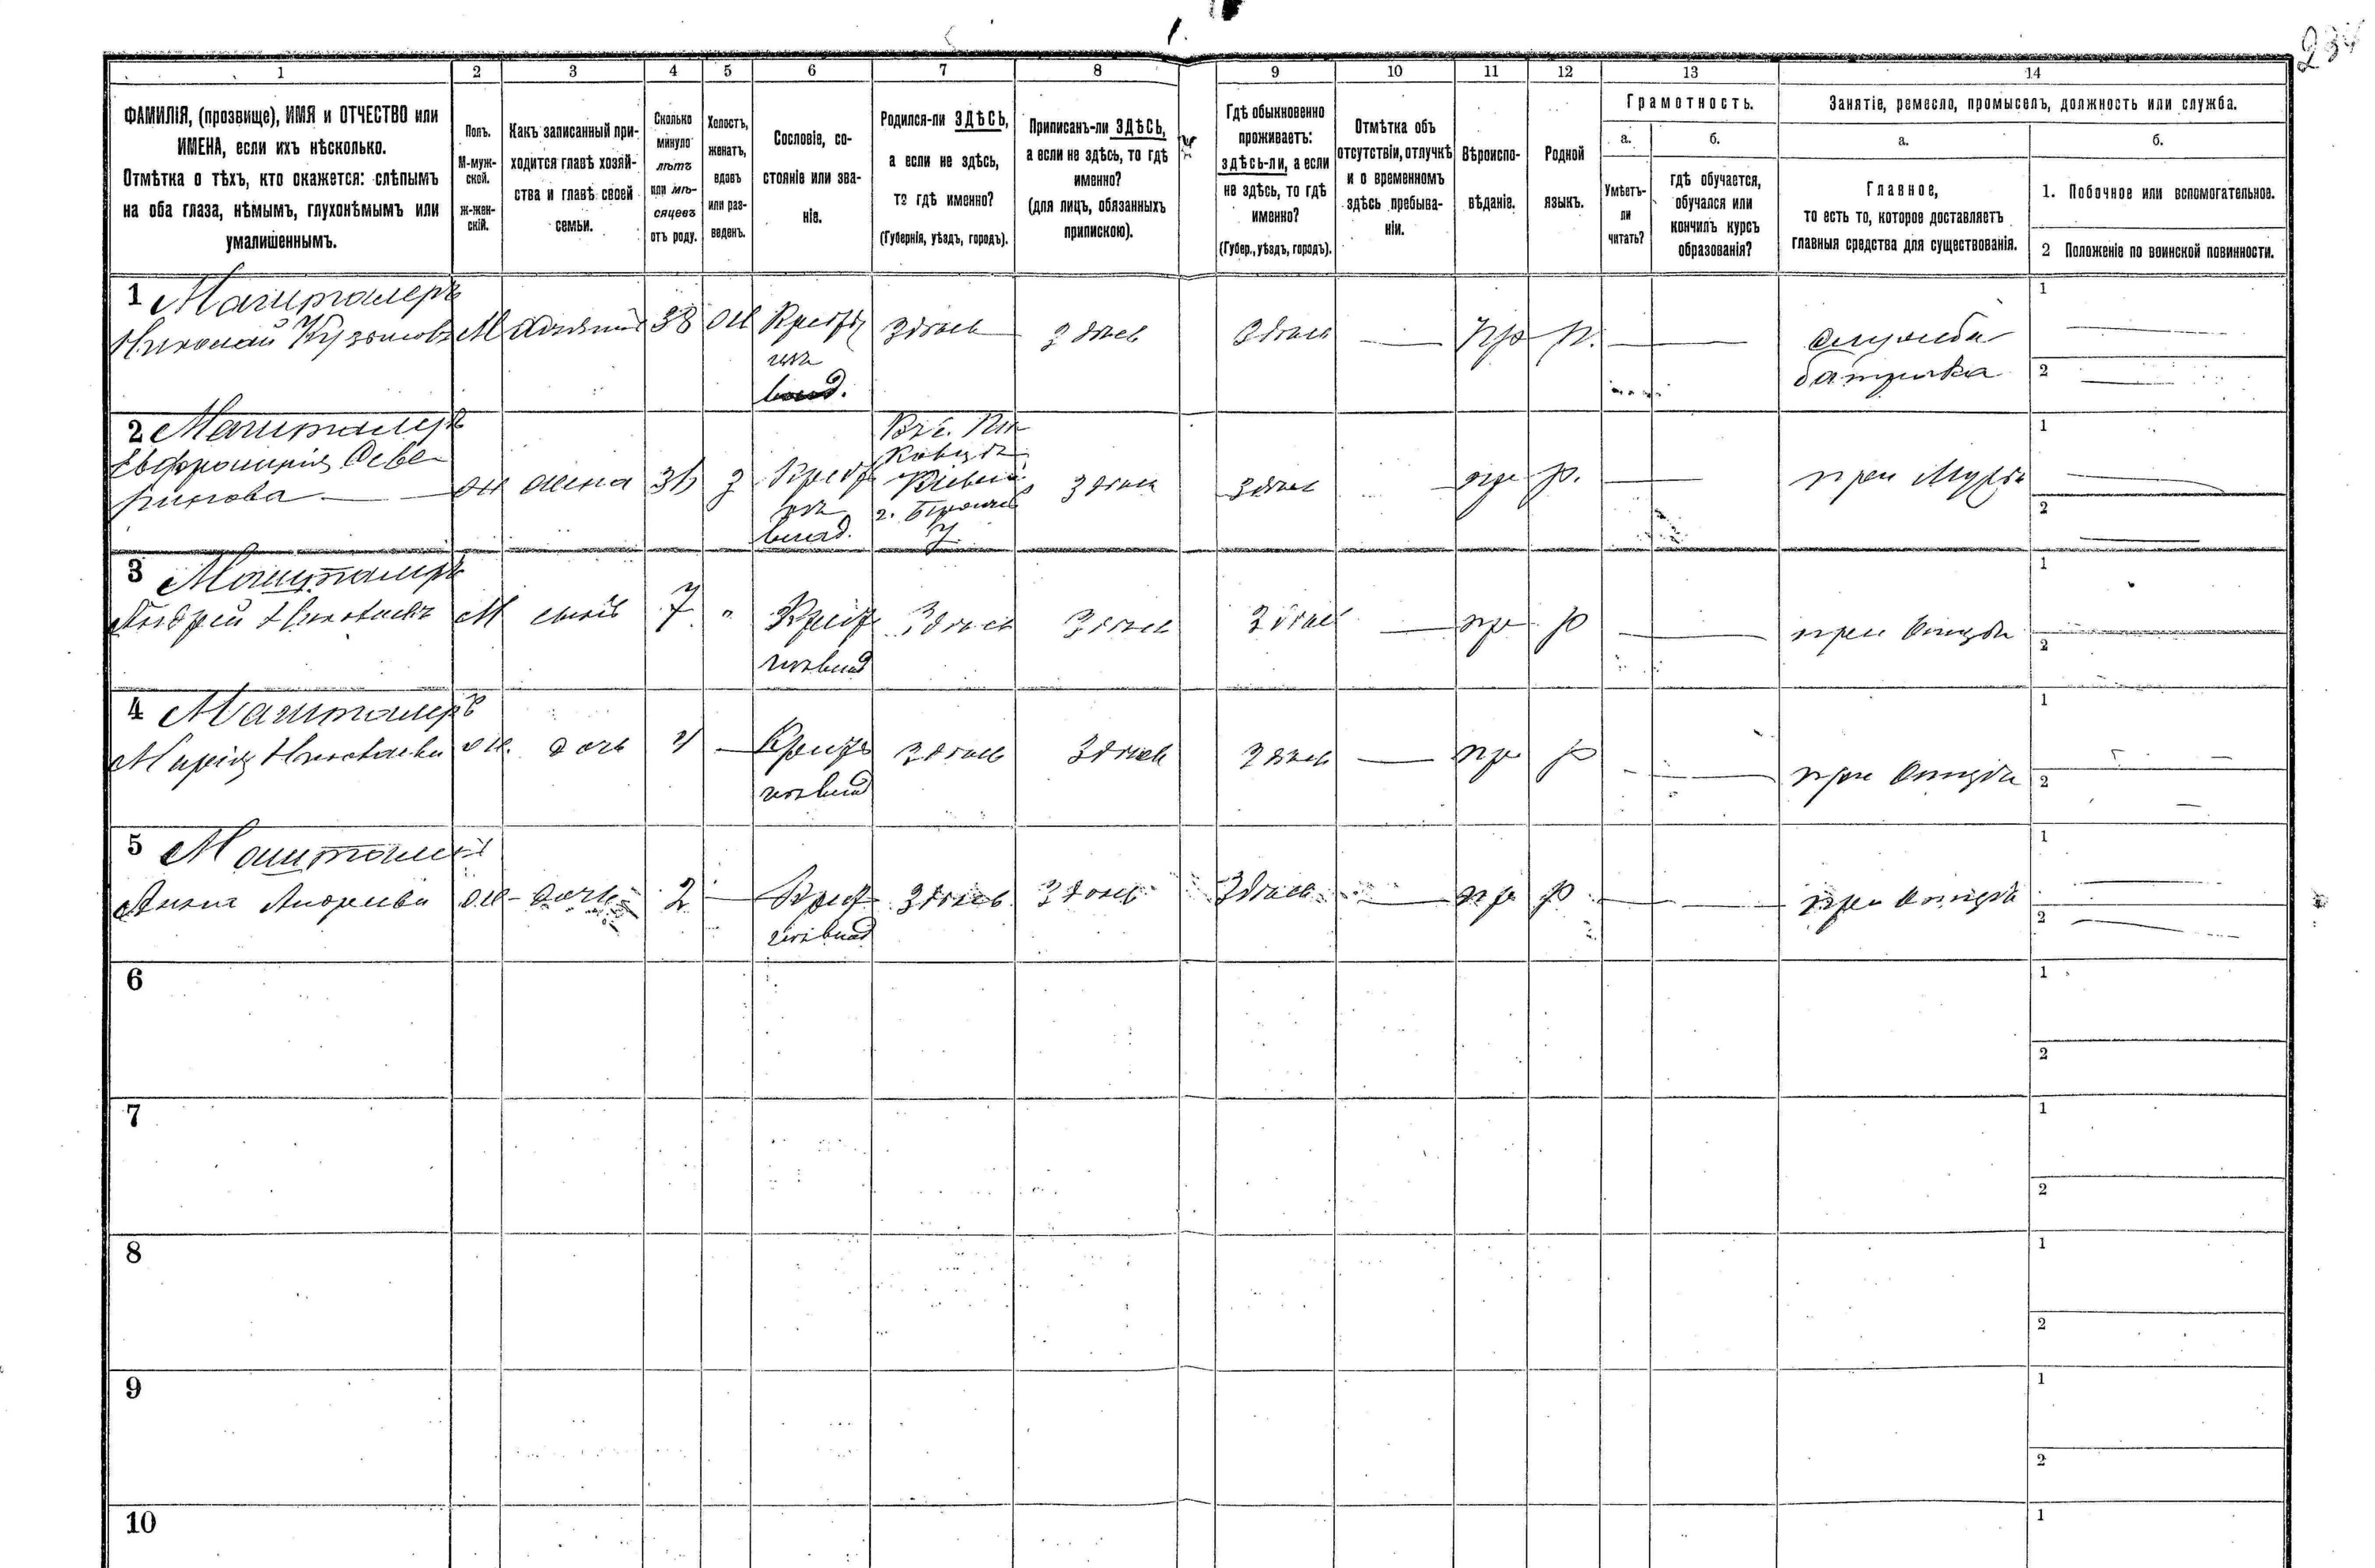 234
1 2 3 4 5 6 7 8 9 10 11 12 13 14
ФАМИЛІЯ, (прозвище), ИМЯ и ОТЧЕСТВО или
ИМЕНА, если ихъ нѣсколько.
Отмѣтка о тѣхъ, кто окажется: слѣпымъ
на оба глаза, нѣмымъ, глухонѣмымъ или
умалишеннымъ.
Полъ.
М-муж-
ской.
Ж-жен-
скій.
Какъ записанный при-
ходится главѣ хозяй-
ства и главѣ своей
семьи.
Сколько
минуло
лѣтъ
или мѣ-
сяцевъ
отъ роду.
Холостъ,
женатъ,
вдовъ
или раз-
веденъ.
Сословіе, со-
стояніе или зва-
ніе.
Родился-ли ЗДѢСЬ,
а если не здѣсь,
то гдѣ именно?
(Губернія, уѣздъ, городъ).
Приписанъ-ли ЗДѢСЬ,
а если не здѣсь, то гдѣ
именно?
(для лицъ, обязанныхъ
припискою).
Гдѣ обыкновенно
проживаетъ:
здѣсь-ли, а если
не здѣсь, то гдѣ
именно?
(Губер., уѣздъ, городъ).
Отмѣтка объ
отсутствіи, отлучкѣ
и о временномъ
здѣсь пребыва-
ніи.
Вѣроиспо-
вѣданіе.
Родной
языкъ.
Грамотность.
а.
Умѣетъ-
ли
читать?
б.
гдѣ обучается,
обучался или
кончилъ курсъ
образованія?
Занятіе, ремесло, промыселъ, должность или служба.
а.
Главное,
то есть то, которое доставляетъ
главныя средства для существованія.
б.
1. Побочное или вспомогательное.
2 Положеніе по воинской повинности.
1 Машталеръ
Николай Кузьмовъ М Хозяинъ 38 ж Крест здѣсь здѣсь здѣсь — пр р. — — служба
изъ
влад.
батрака
1
2
2 Машталеръ
Евфросинія Севе-
ринова — ж жена 36 з Крест здѣсь здѣсь пр р. — при мужѣ
изъ
влад.
1
2
3 Машталеръ
Андрей Николаевъ М сынъ 7 " Крест здѣсь здѣсь здѣсь — пр р — — при отцѣ
изъ влад
1
2
4 Машталеръ
Марія Николаева ж. дочь 4 — Крест здѣсь здѣсь здѣсь — пр р — — при отцѣ
изъ влад
1
2
5 Машталеръ
Анна ж - дочь 2 — Крест здѣсь здѣсь здѣсь — пр р — — при отцѣ
изъ влад
1
2
6
1
2
7
1
2
8
1
2
9
1
2
10
1